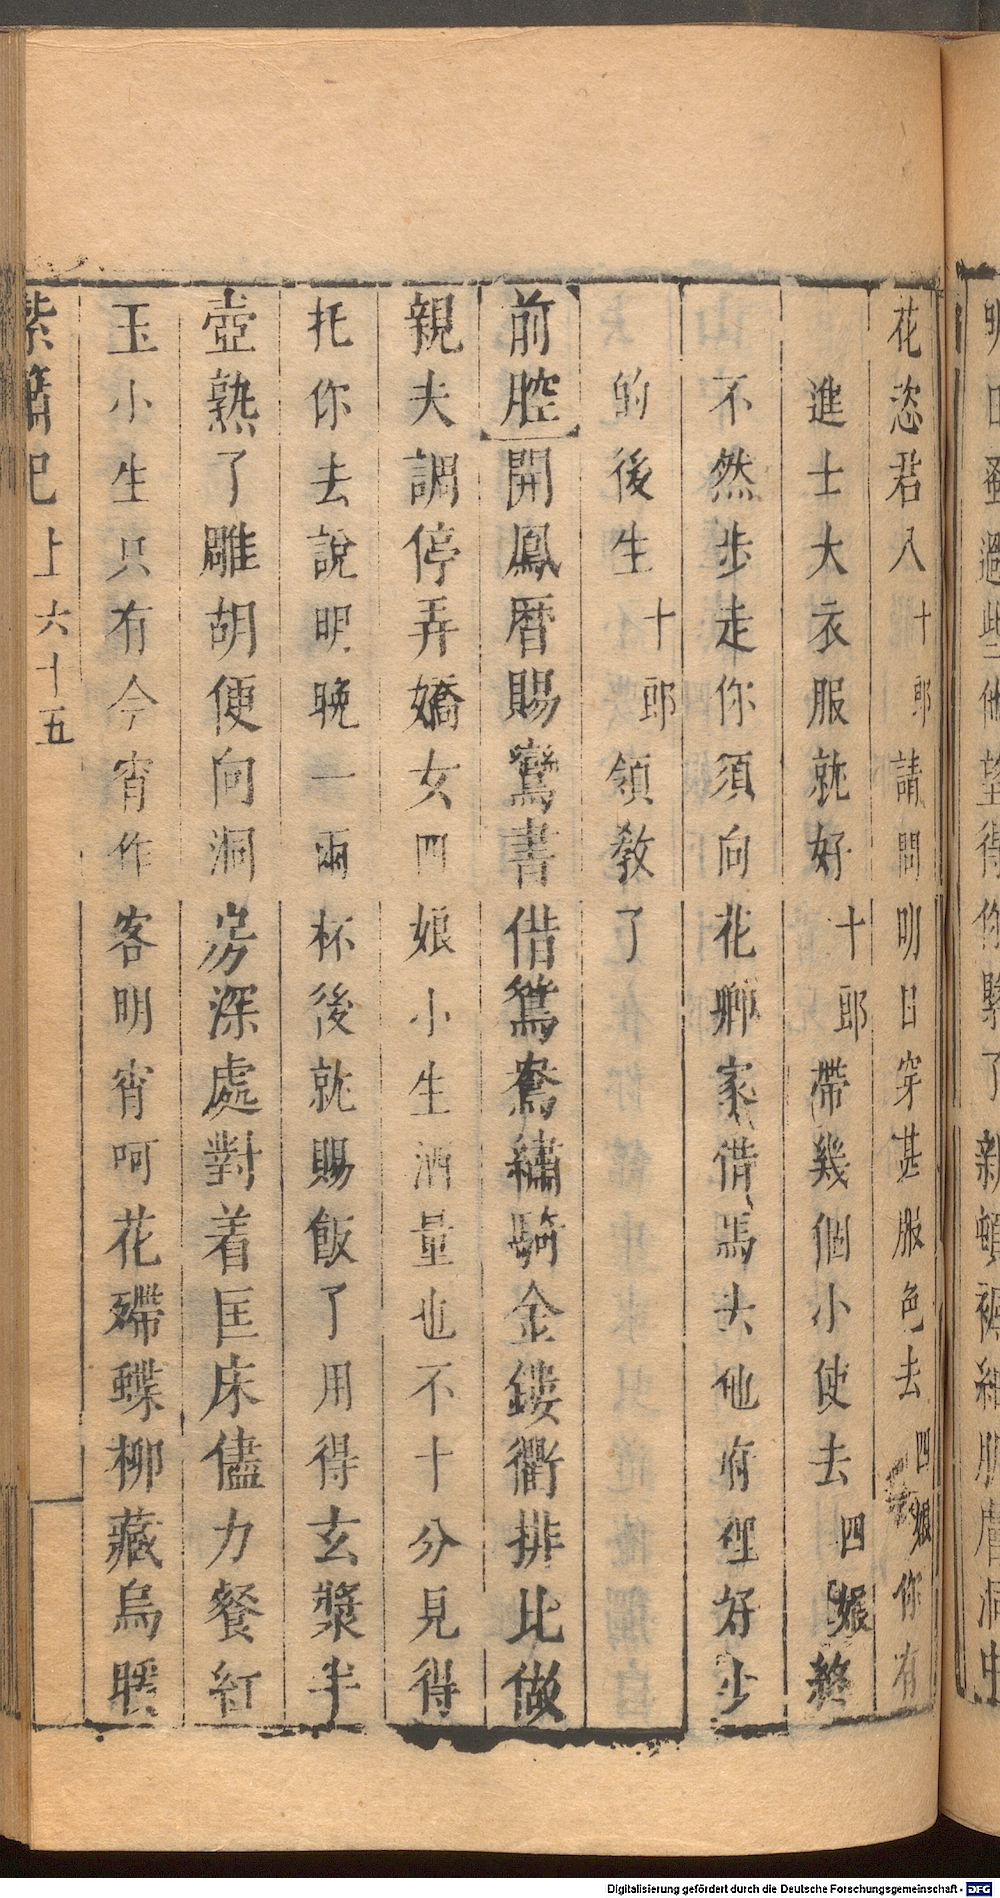 花恣君入十郎請問明日穿甚服色去四娘你有
進士大衣服就好十郎帶幾個小使去四娘終
不然步走你須向花卿家借馬去他府裡好少
的後生十郎領教了
前腔開鳳曆賜鸞書借鴛鴦繡騎金鏤衢排比做
親夫調停弄嬌女四娘小生酒量也不十分見得
托你去說明晚一兩杯後就賜飯了用得玄漿半
壺熟了雕胡便向洞房深處對着匡床儘力餐紅
玉小生只有今宵作客明宵呵花殢蝶柳藏烏暖
紫簫記上六十五
Digitalisierung gefördert durch die Deutsche Forschungsgemeinschaft - DFG